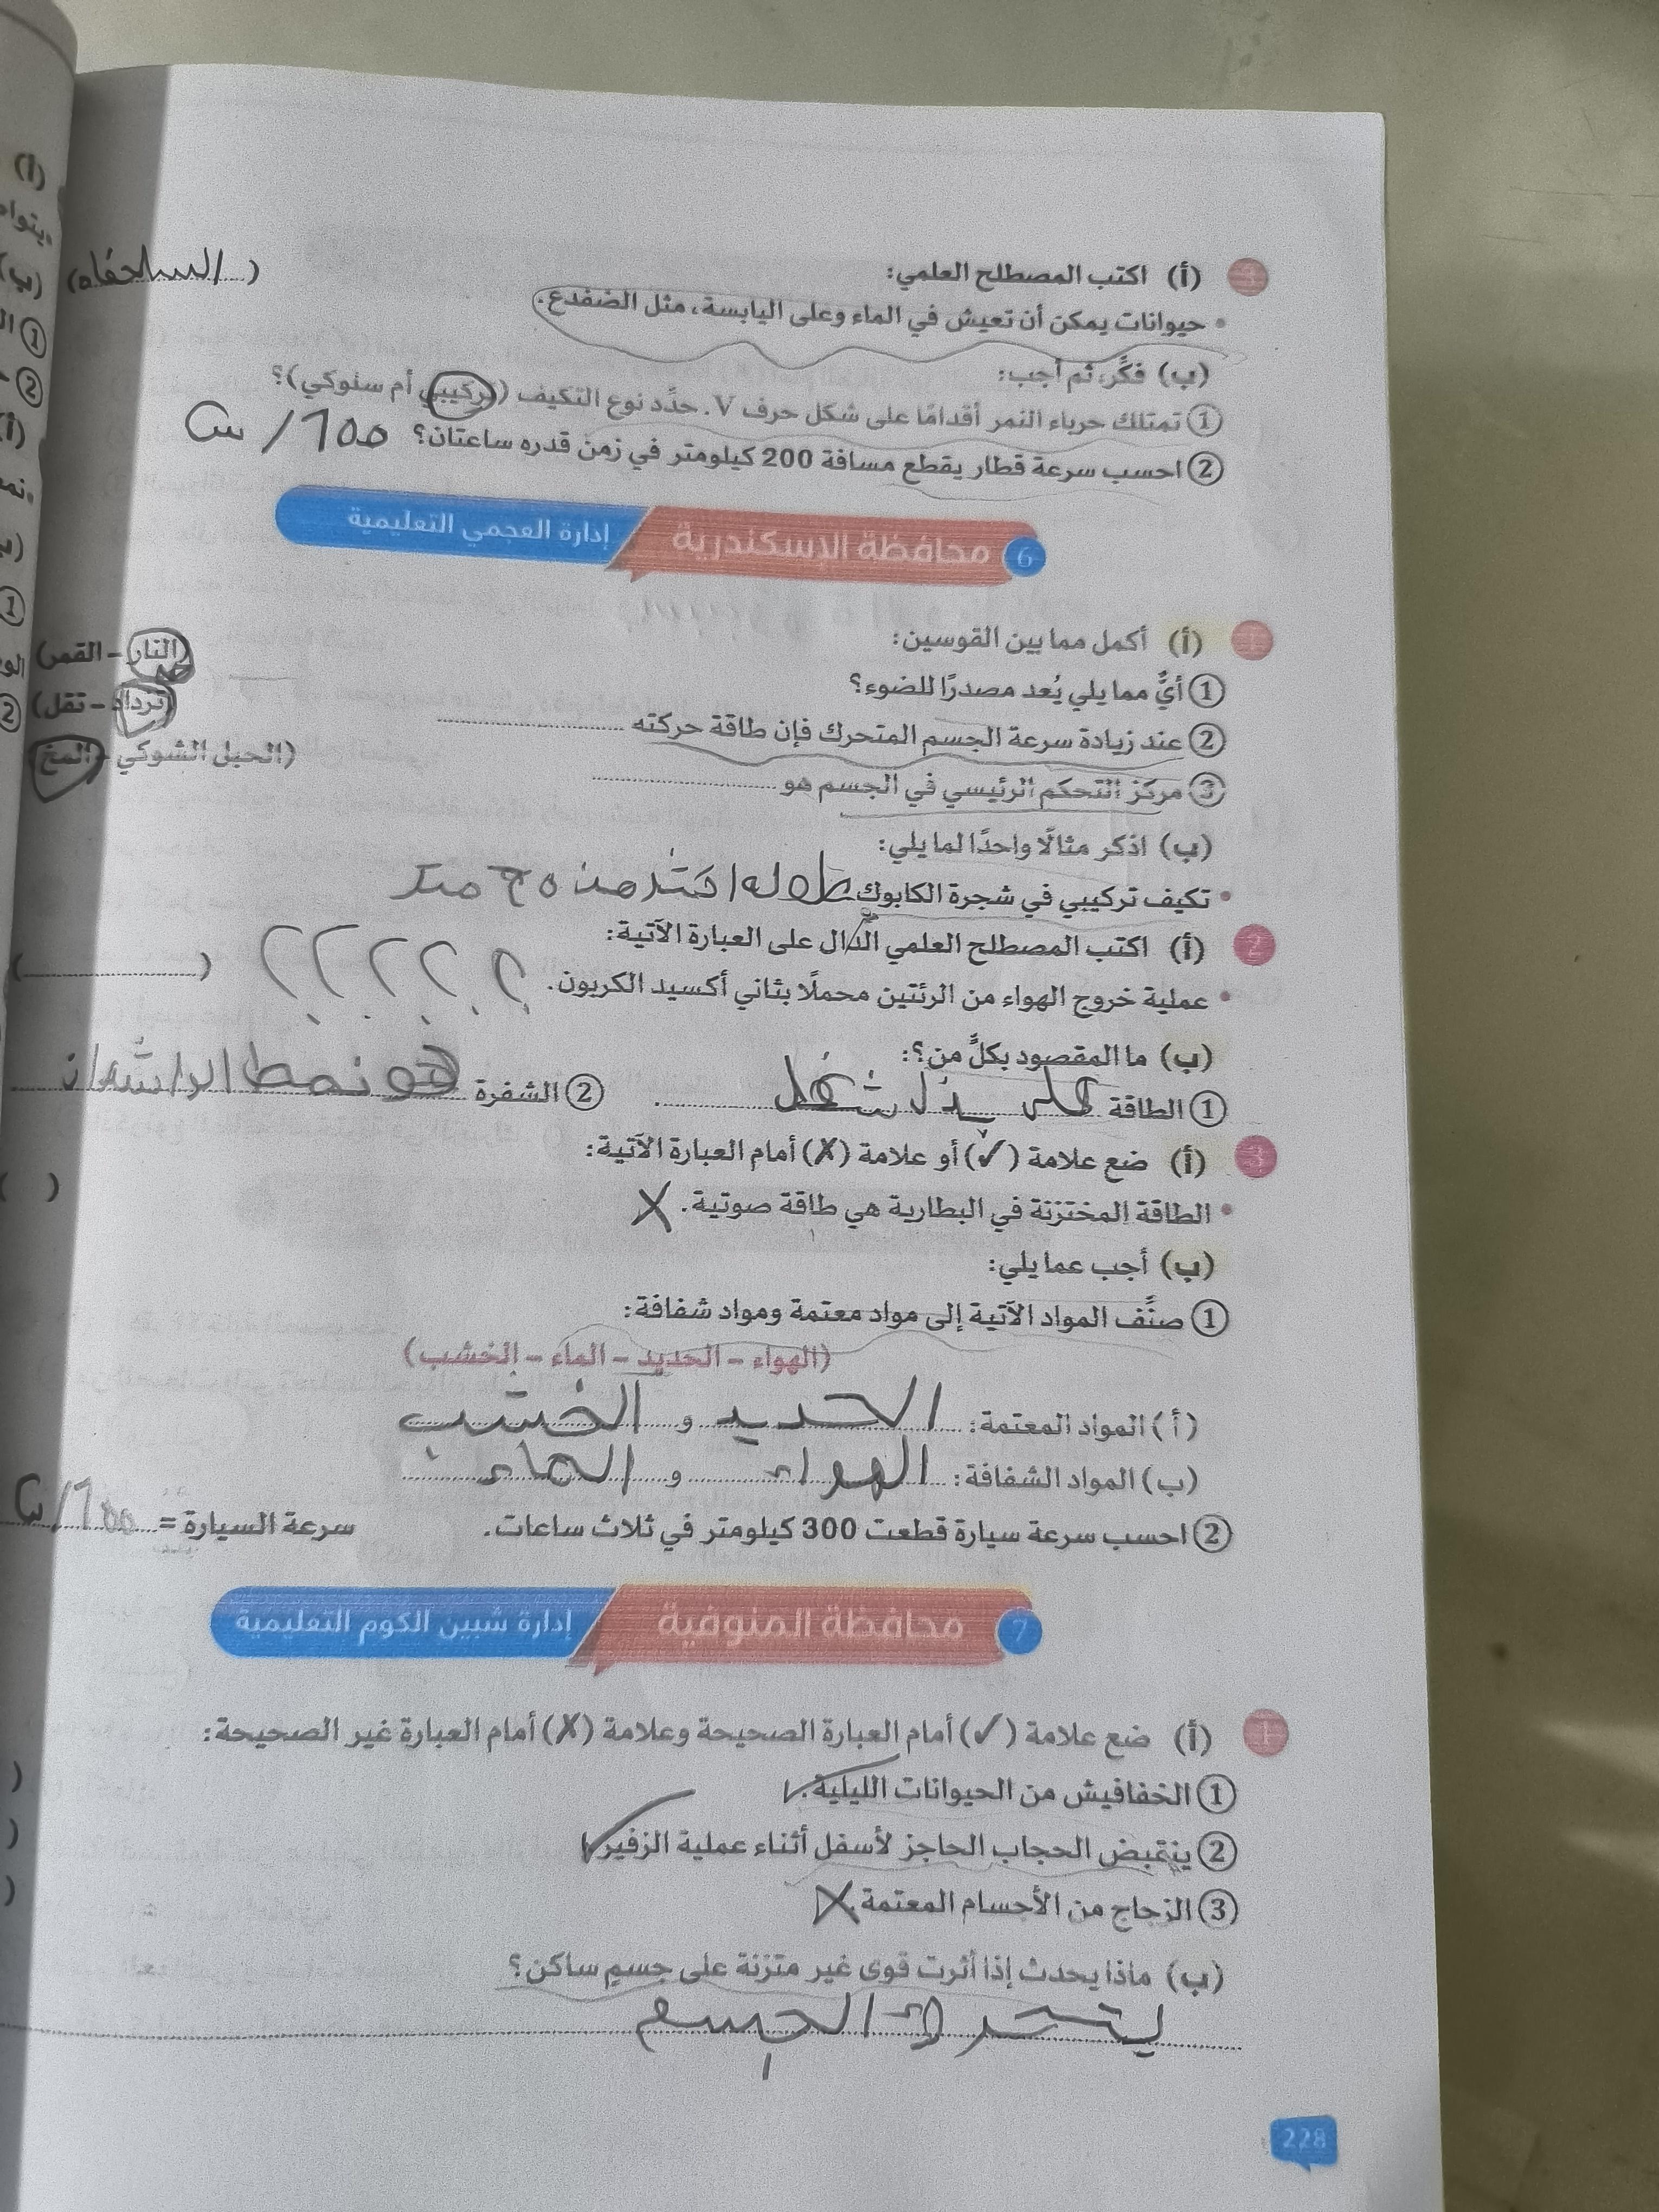 3 (أ) اكتب المصطلح العلمي:
• حيوانات يمكن أن تعيش في الماء وعلى اليابسة، مثل الضفدع. (السلحفاه)
(ب) فكِّر، ثم أجب:
① تمتلك حرباء النمر أقدامًا على شكل حرف V. حدِّد نوع التكيف (تركيبي أم سلوكي)؟
② احسب سرعة قطار يقطع مسافة 200 كيلومتر في زمن قدره ساعتان؟ 100/س
6 محافظة الإسكندرية إدارة العجمي التعليمية
1 (أ) أكمل مما بين القوسين:
① أيٌّ مما يلي يُعد مصدرًا للضوء؟ (النار – القمر)
② عند زيادة سرعة الجسم المتحرك فإن طاقة حركته (تزداد – تقل)
③ مركز التحكم الرئيسي في الجسم هو (الحبل الشوكي – المخ)
(ب) اذكر مثالًا واحدًا لما يلي:
• تكيف تركيبي في شجرة الكابوك
2 (أ) اكتب المصطلح العلمي الدال على العبارة الآتية:
• عملية خروج الهواء من الرئتين محملًا بثاني أكسيد الكربون. ؟ ؟ ؟ ؟ ؟ ( )
(ب) ما المقصود بكلٍّ من؟:
① الطاقة شغل. ② الشفرة هو نمط
3 (أ) ضع علامة (✓) أو علامة (✗) أمام العبارة الآتية:
• الطاقة المختزنة في البطارية هي طاقة صوتية. ✗ ( )
(ب) أجب عما يلي:
① صنِّف المواد الآتية إلى مواد معتمة ومواد شفافة:
(الهواء – الحديد – الماء – الخشب)
(أ) المواد المعتمة: الحديد و الخشب
(ب) المواد الشفافة: الهواء و الماء
② احسب سرعة سيارة قطعت 300 كيلومتر في ثلاث ساعات. سرعة السيارة = 100/س
7 محافظة المنوفية إدارة شبين الكوم التعليمية
1 (أ) ضع علامة (✓) أمام العبارة الصحيحة وعلامة (✗) أمام العبارة غير الصحيحة:
① الخفافيش من الحيوانات الليلية. ✓
② ينقبض الحجاب الحاجز لأسفل أثناء عملية الزفير. ✓
③ الزجاج من الأجسام المعتمة. ✗
(ب) ماذا يحدث إذا أثرت قوى غير متزنة على جسمٍ ساكن؟
يتحرك الجسم
228